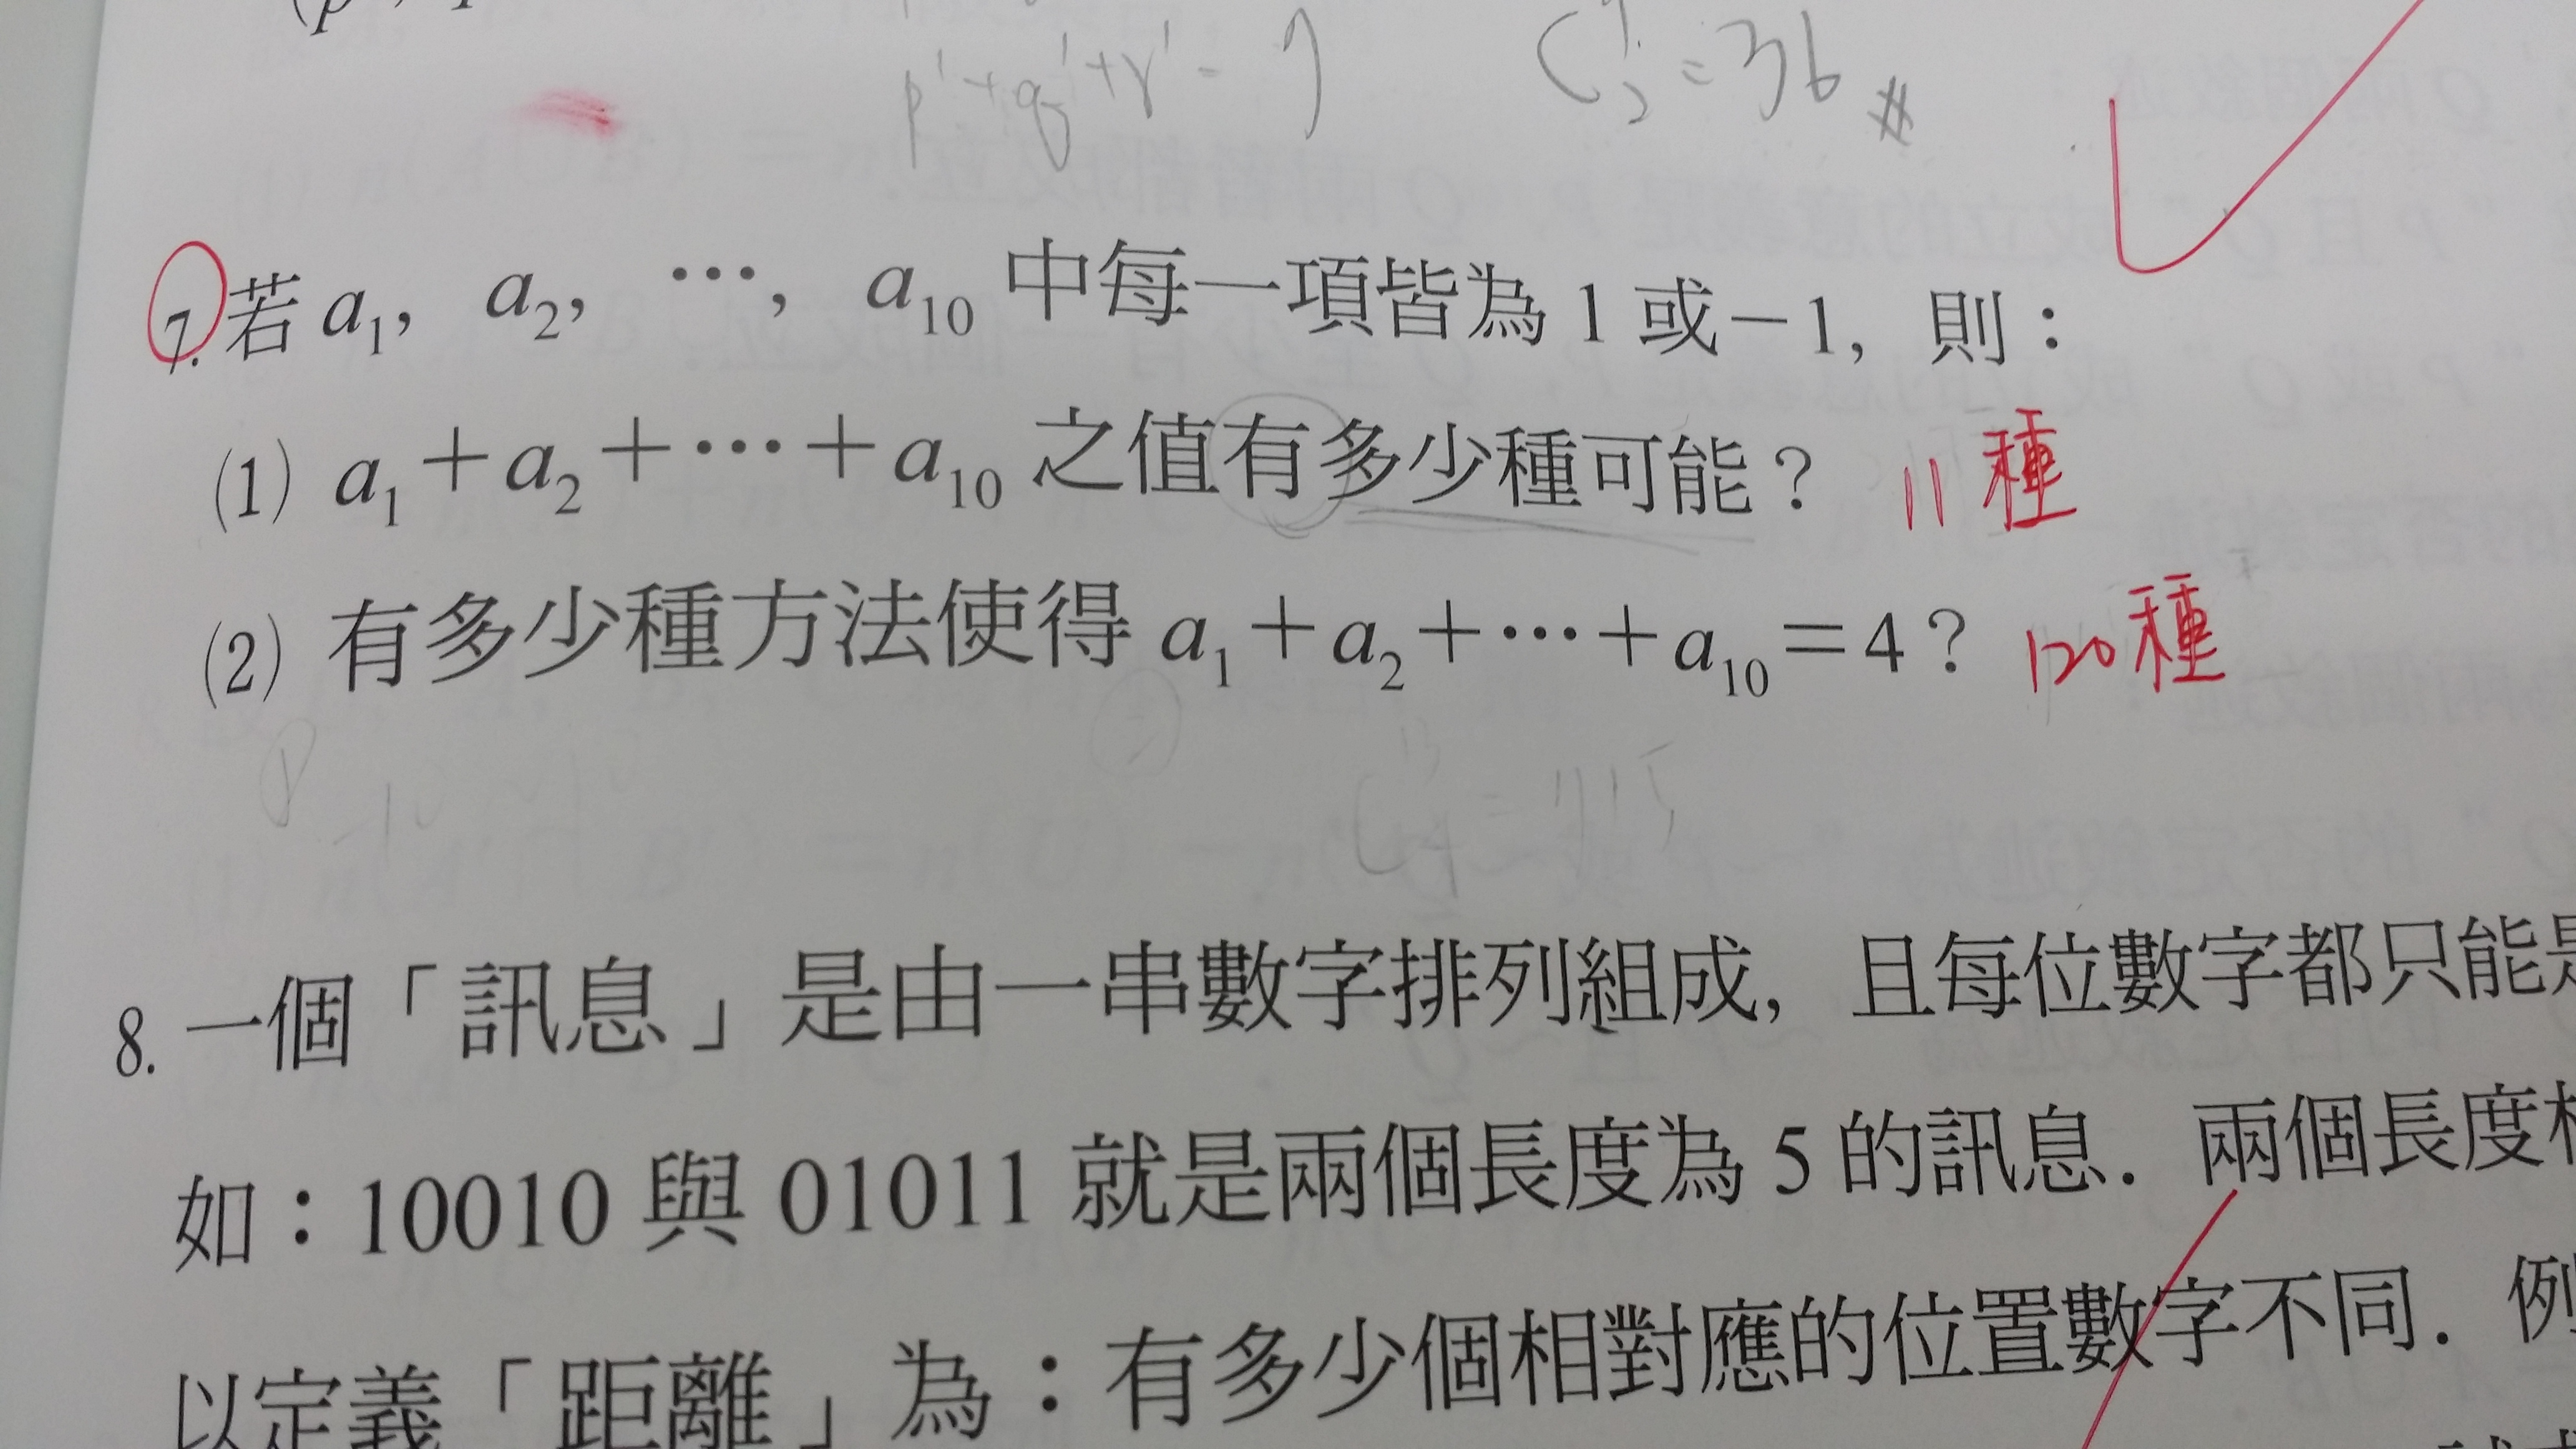 p'+q'+r'=7 C⁹₂=36 #
7. 若 a₁, a₂, …, a₁₀ 中每一項皆為 1 或 −1, 則：
(1) a₁+a₂+…+a₁₀ 之值有多少種可能？ 11種
(2) 有多少種方法使得 a₁+a₂+…+a₁₀=4？ 120種
8. 一個「訊息」是由一串數字排列組成, 且每位數字都只能
如：10010 與 01011 就是兩個長度為 5 的訊息. 兩個長度
以定義「距離」為：有多少個相對應的位置數字不同. 例